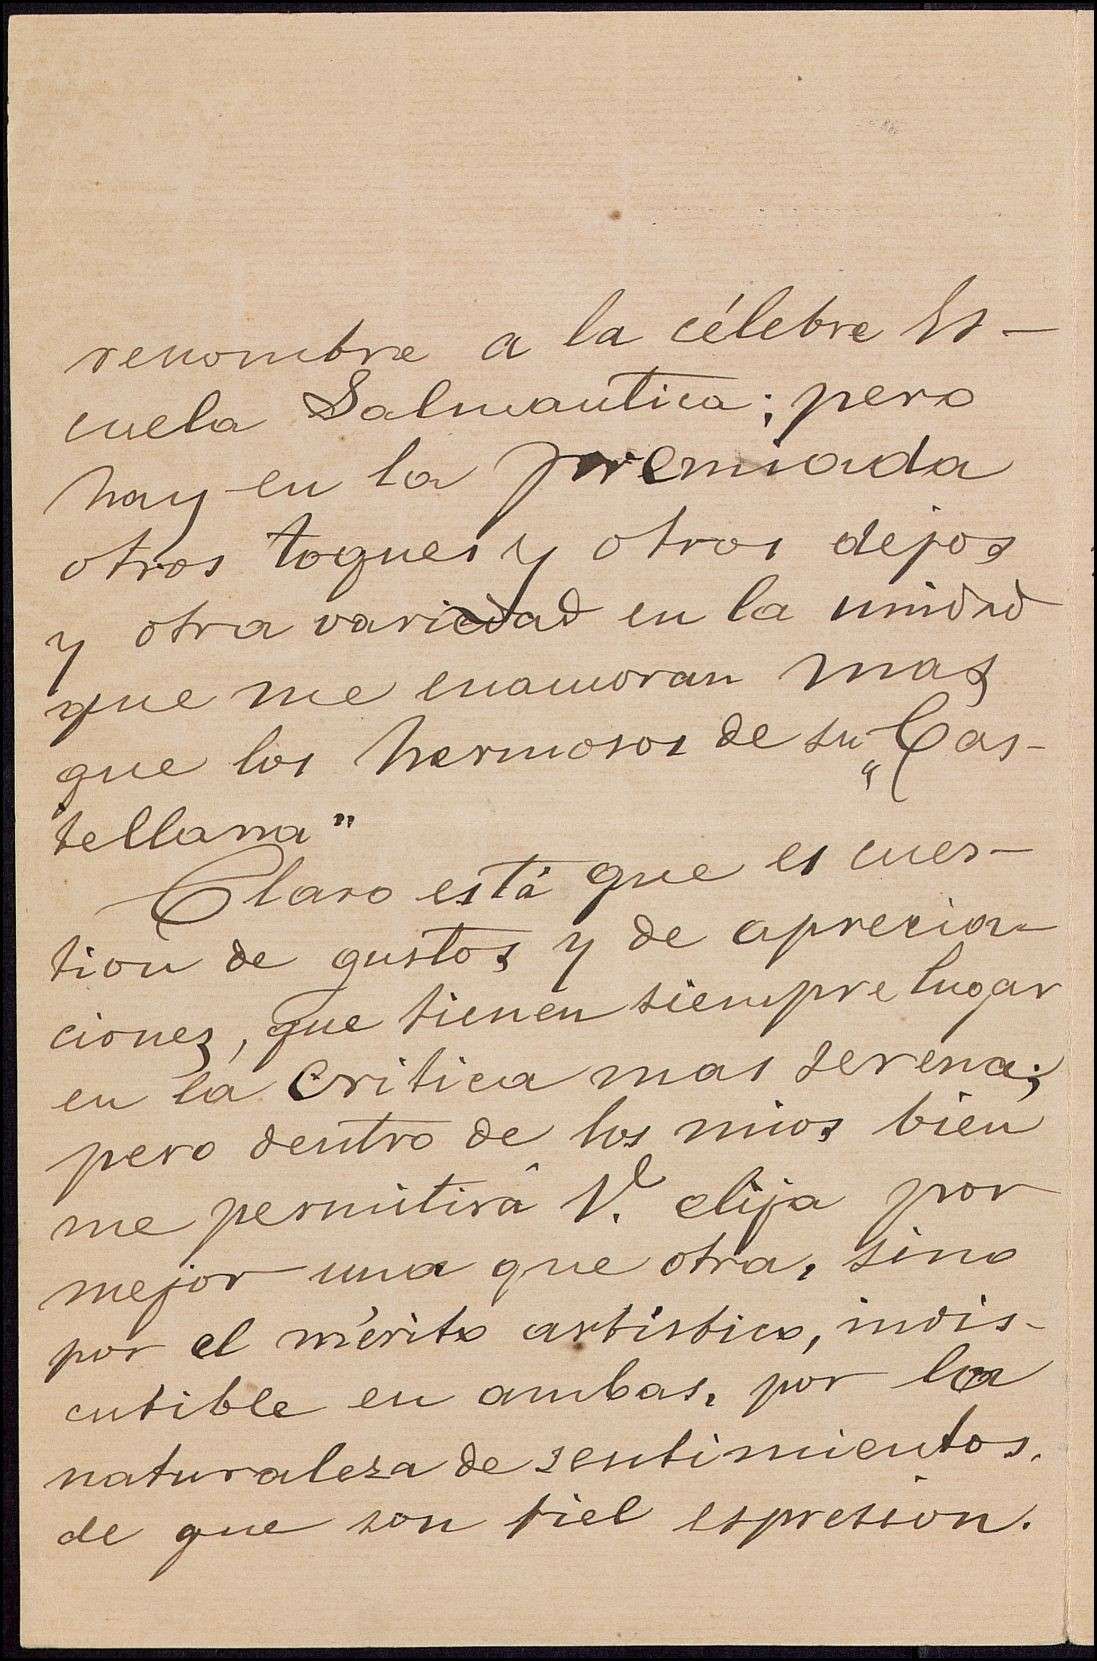 renombre a la célebre Es-
cuela Salmantica; pero
hay en la premiada
otros toques y otros dejos
y otra variedad en la unidad
que me enamoran mas
que los hermosos de su „Cas-
tellana”
Claro está que es cues-
tion de gustos y de aprecia-
ciones, que tienen siempre lugar
en la critica mas serena;
pero dentro de los mios bien
me permitirá V. elija por
mejor una que otra, sino
por el mérito artístico, indis-
cutible en ambas, por la
naturaleza de sentimientos.
de que son fiel espresion.